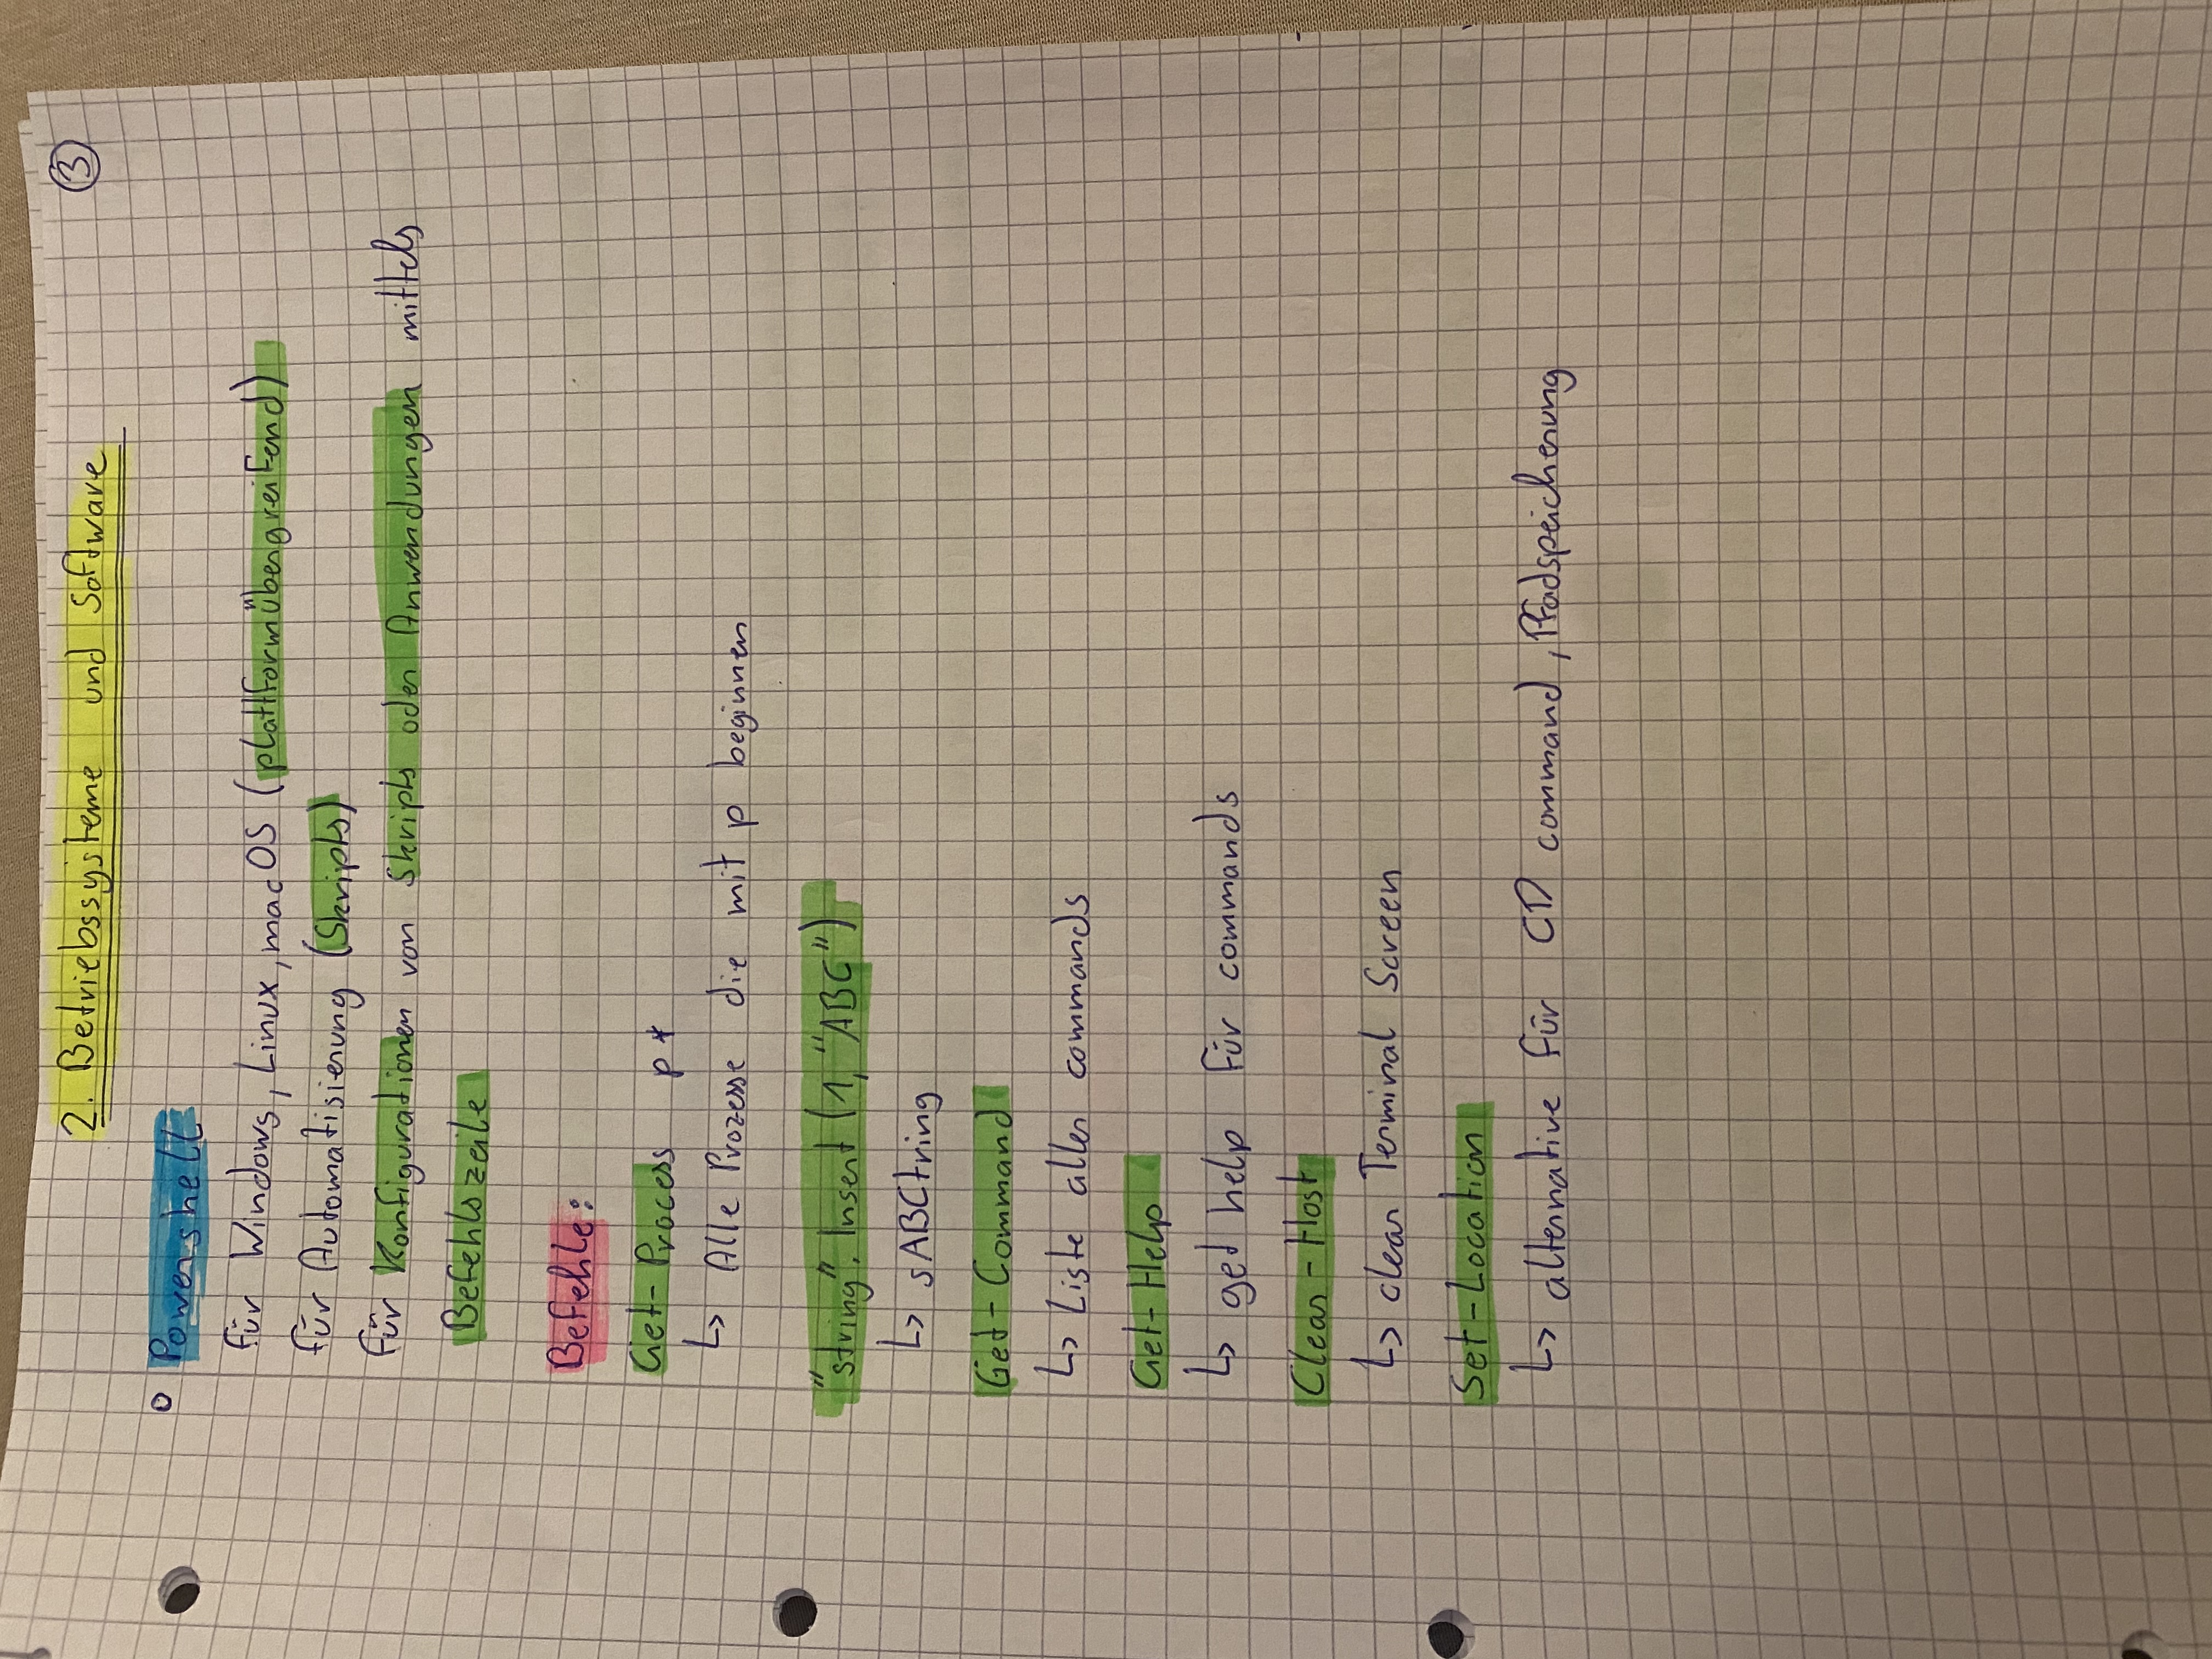 2. Betriebssysteme und Software
③
o Powershell
für Windows, Linux, macOS (plattformübergreifend)
für Automatisierung (Skripts)
für Konfigurationen von Skripts oder Anwendungen mittels
Befehlszeile
Befehle:
Get-Process p*
↳ Alle Prozesse die mit p beginnen
"string". Insert (1, "ABC")
↳ sABCtring
Get-Command
↳ Liste aller commands
Get-Help
↳ get help für commands
Clear-Host
↳ clear Terminal Screen
Set-Location
↳ alternative für CD command, Pfadspeicherung